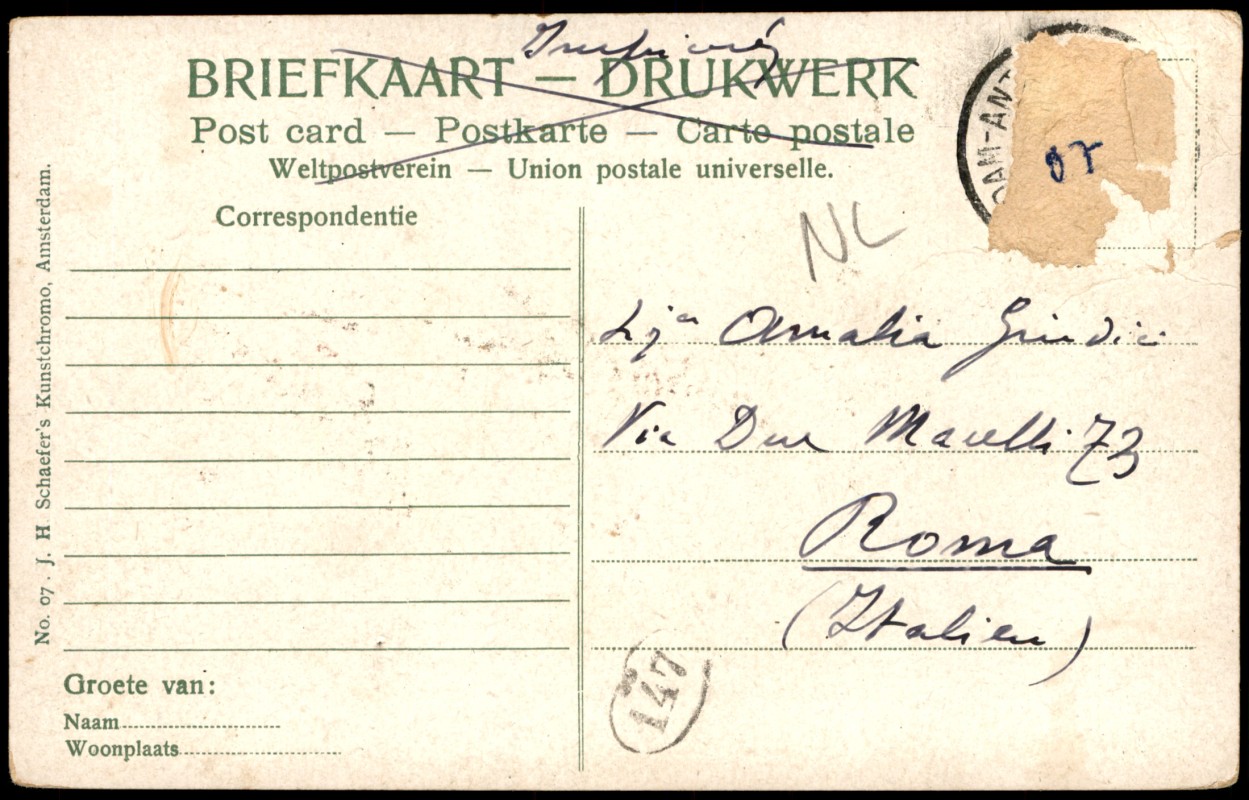 BRIEFKAART — DRUKWERK
Post card — Postkarte — Carte postale
Weltpostverein — Union postale universelle.
DAM-ANT
07
NL
Correspondentie
Amalia Giudici
Via Due Macelli 73
Roma
(Italien)
147
Groete van:
Naam
Woonplaats
No. 07. J. H. Schaefer's Kunstchromo, Amsterdam.